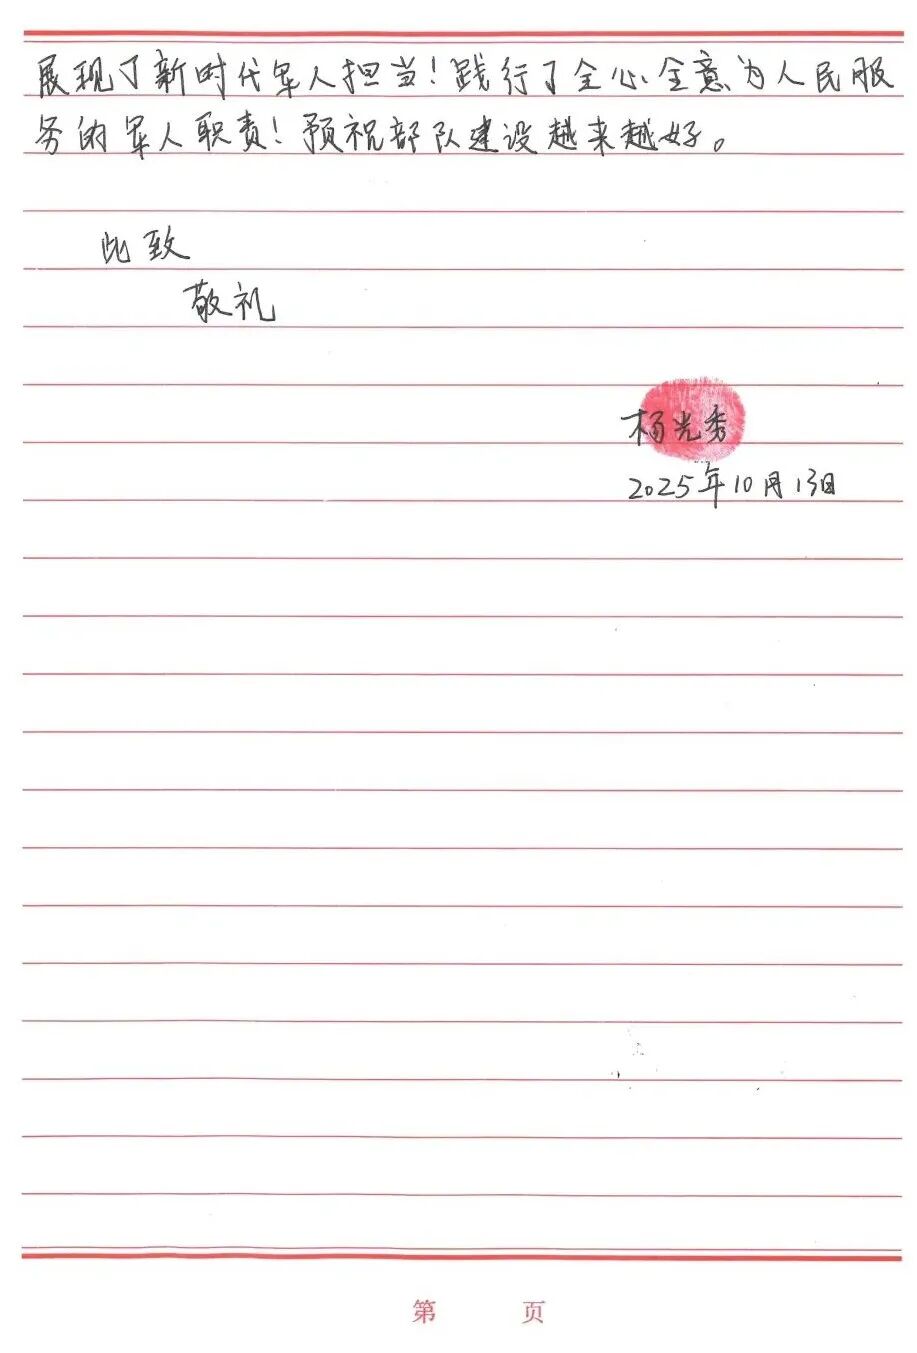 展现了新时代军人担当！践行了全心全意为人民服
务的军人职责！预祝部队建设越来越好。
此致
敬礼
杨光秀
2025年10月13日
第 页